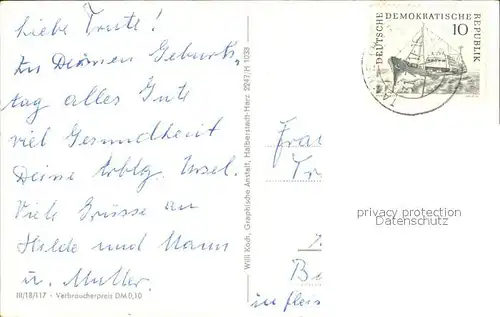 Liebe Trute!
Zu Deinem Geburts-
tag alles Gute
viel Gesundheit
Deine Ursel.
Viele Grüsse an
Hilde und Mann
u. Mutter.
III/18/117 - Verbraucherpreis DM 0,10
Willi Koch, Graphische Anstalt, Halberstadt-Harz 2247/H 1033
DEUTSCHE DEMOKRATISCHE REPUBLIK
10
Frau
Tr
privacy protection
Datenschutz
B